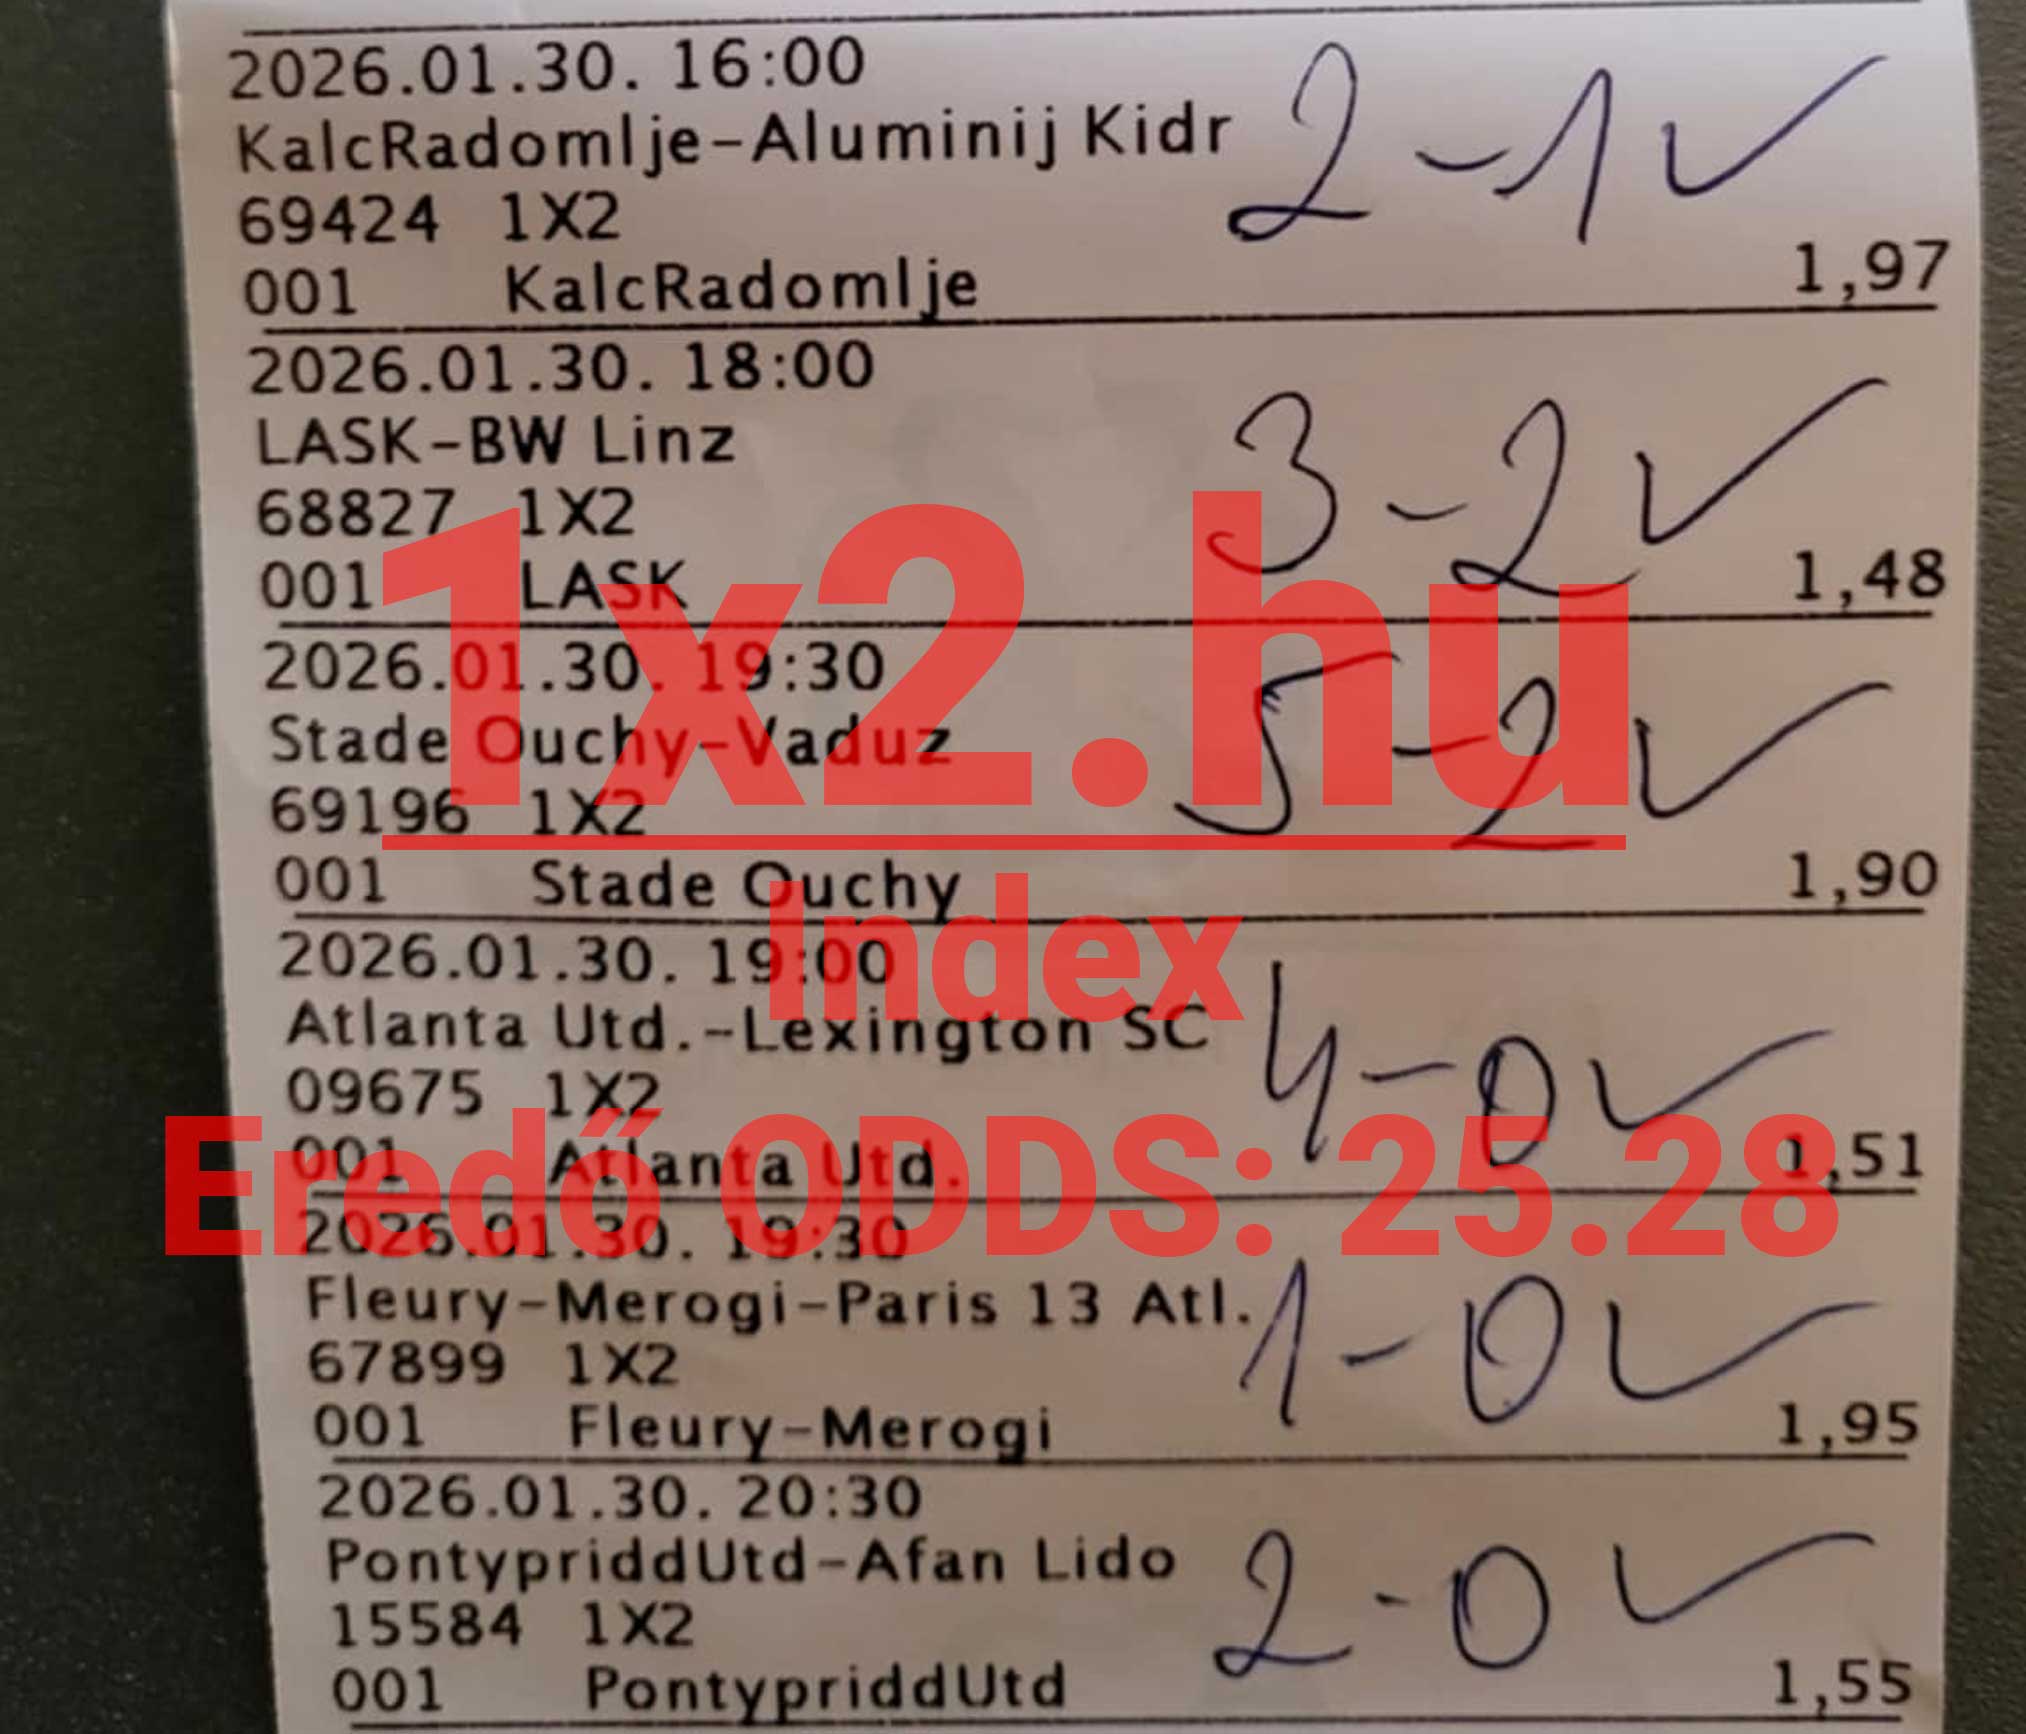 2026.01.30. 16:00
KalcRadomlje-Aluminij Kidr 2-1 ✓
69424 1X2
001 KalcRadomlje 1,97
2026.01.30. 18:00
LASK-BW Linz 3-2 ✓
68827 1X2
001 LASK 1,48
2026.01.30. 19:30
Stade Ouchy-Vaduz 5-2 ✓
69196 1X2
001 Stade Ouchy 1,90
2026.01.30. 19:00
Atlanta Utd.-Lexington SC 4-0 ✓
09675 1X2
001 Atlanta Utd. 1,51
2026.01.30. 19:30
Fleury-Merogi-Paris 13 Atl. 1-0 ✓
67899 1X2
001 Fleury-Merogi 1,95
2026.01.30. 20:30
PontypriddUtd-Afan Lido 2-0 ✓
15584 1X2
001 PontypriddUtd 1,55
1x2.hu
Index
Eredő ODDS: 25.28